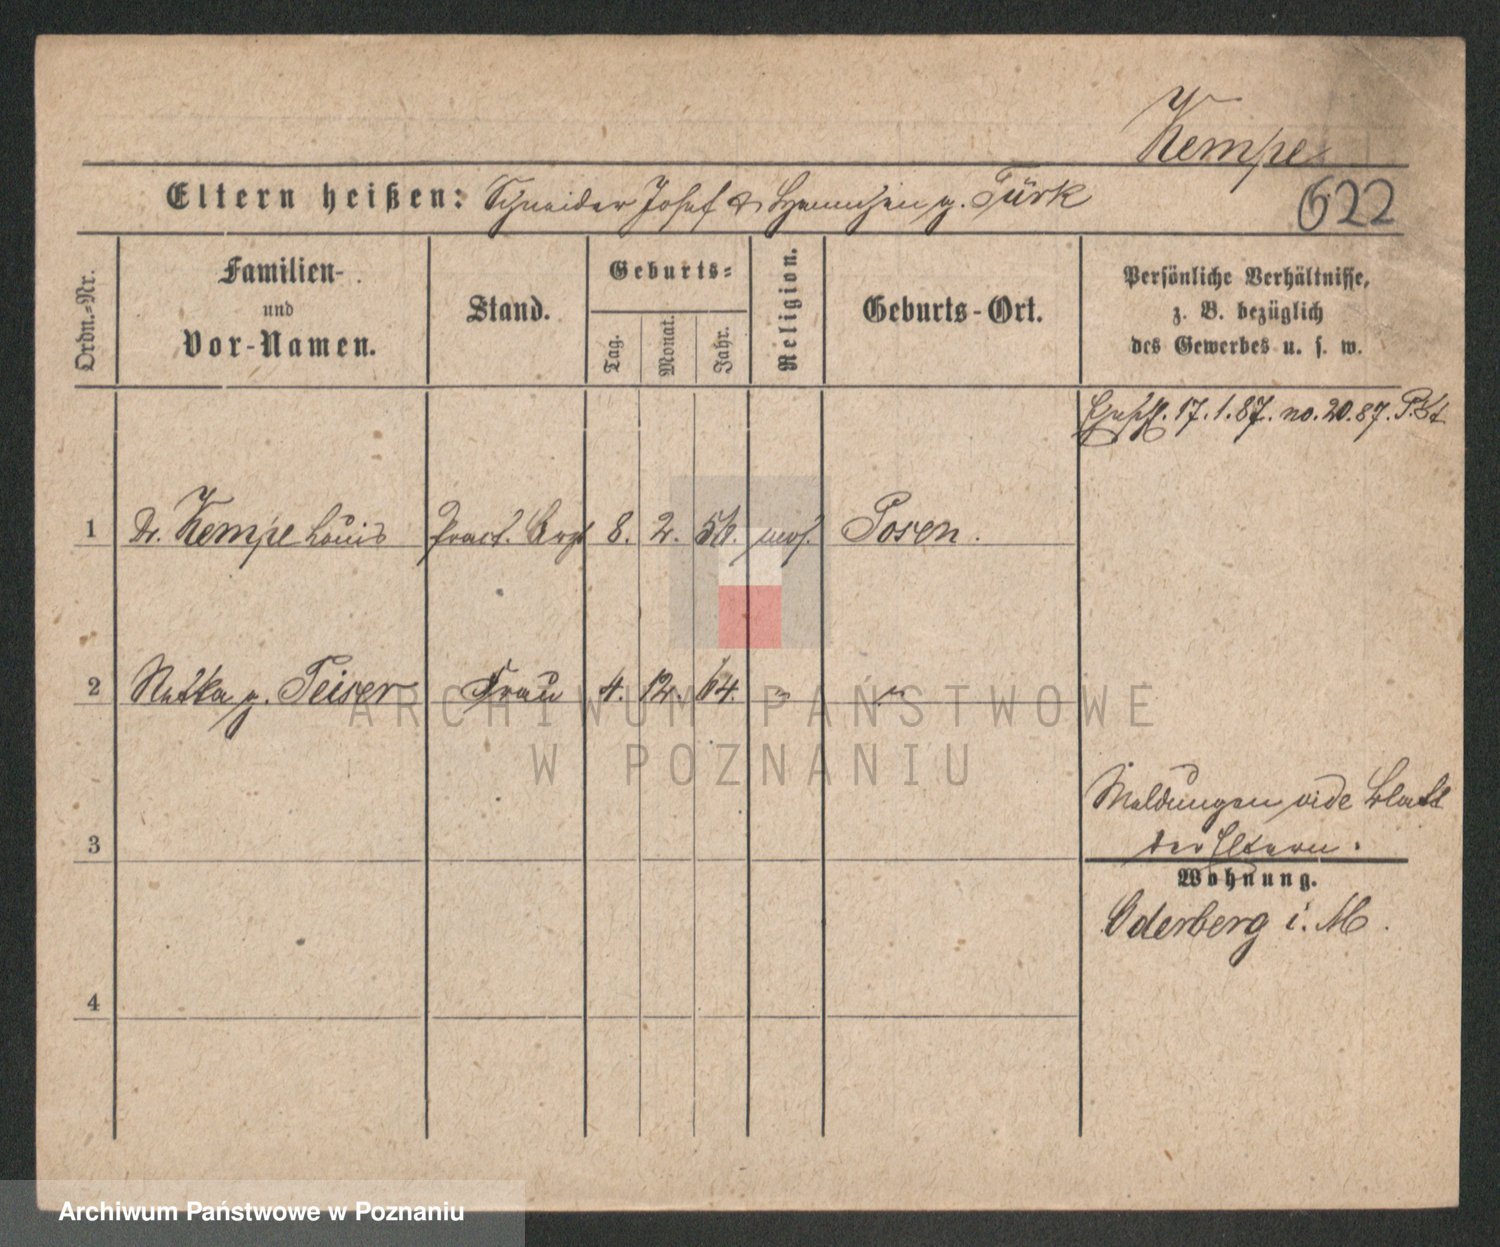 Kempe
Eltern heißen: Schneider Josef & Hannchen g. Türk
622
Ordn.-Nr.
Familien-
und
Vor-Namen.
Stand.
Geburts-
Tag.
Monat.
Jahr.
Religion.
Geburts-Ort.
Persönliche Verhältnisse,
z. B. bezüglich
des Gewerbes u. s. w.
17.1.87. no. 20.87.
1 Dr. Kempe Louis Pract. Arzt 8. 2. mos. Posen.
2 g. Peiser Frau 4. 12. 64. " "
3
4
Meldungen vide Blatt
der Eltern.
Wohnung.
Oderberg i. M.
ARCHIWUM PAŃSTWOWE
W POZNANIU
Archiwum Państwowe w Poznaniu